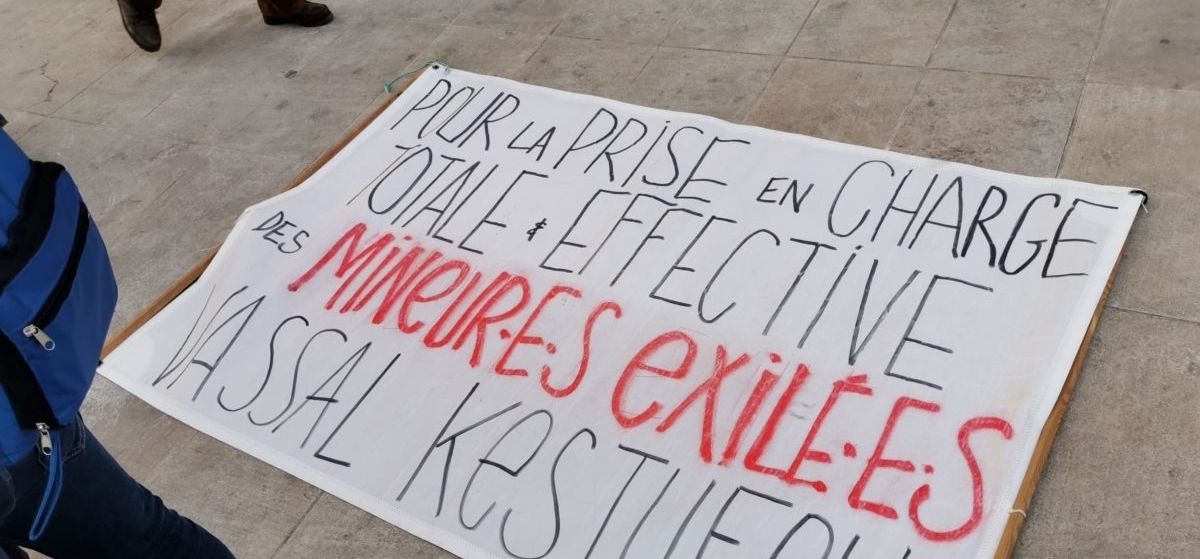 POUR LA PRISE EN CHARGE
TOTALE & EFFECTIVE
DES MiNeUR·E·S eXiLÉ·E·S
VASSAL KeSTUFOU